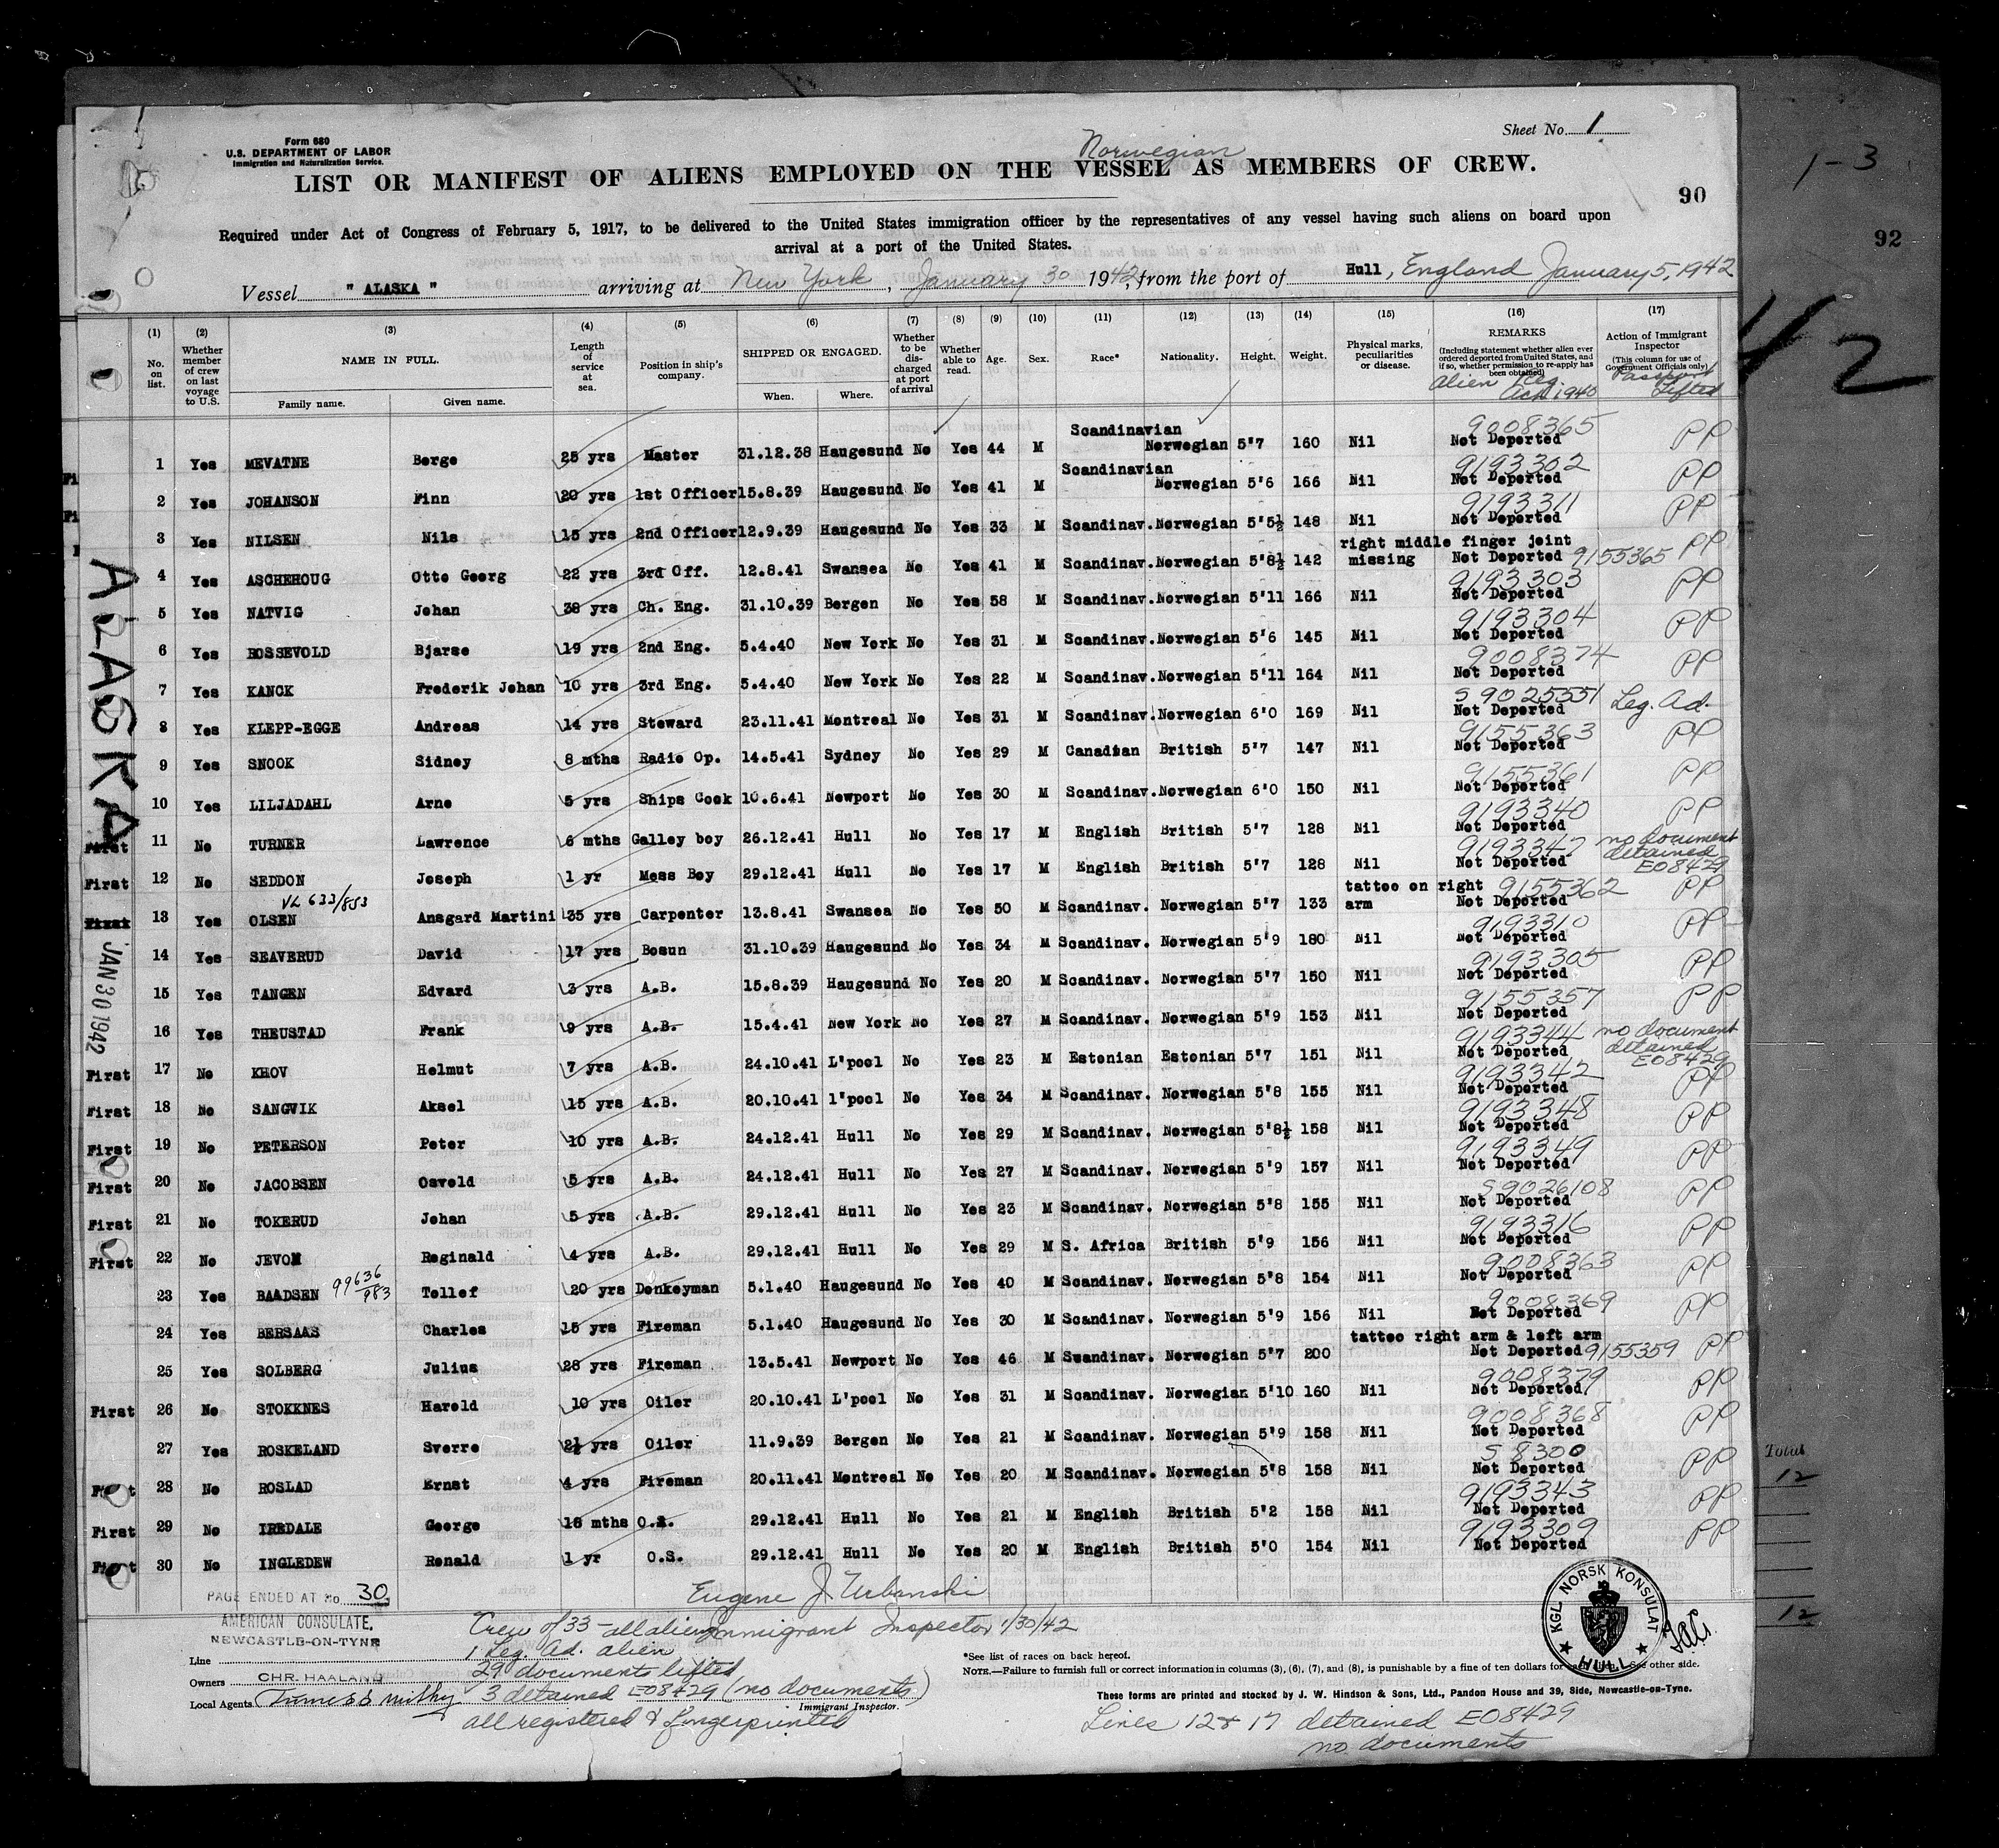 Form 680
U.S. DEPARTMENT OF LABOR
Immigration and Naturalization Service.
Sheet No. 1
Norwegian
1-3
LIST OR MANIFEST OF ALIENS EMPLOYED ON THE VESSEL AS MEMBERS OF CREW.
90
92
Required under Act of Congress of February 5, 1917, to be delivered to the United States immigration officer by the representatives of any vessel having such aliens on board upon
arrival at a port of the United States.
Vessel " ALASKA " arriving at New York, January 30 1942, from the port of Hull, England January 5, 1942
42
(1) No. on list.
(2) Whether member of crew on last voyage to U.S.
(3) NAME IN FULL. Family name. Given name.
(4) Length of service at sea.
(5) Position in ship's company.
(6) SHIPPED OR ENGAGED. When. Where.
(7) Whether to be discharged at port of arrival
(8) Whether able to read.
(9) Age.
(10) Sex.
(11) Race*
(12) Nationality.
(13) Height.
(14) Weight.
(15) Physical marks, peculiarities or disease.
(16) REMARKS (Including statement whether alien ever ordered deported from United States, and if so, whether permission to re-apply has been obtained) Alien Reg. Act 1940
(17) Action of Immigrant Inspector (This column for use of Government Officials only) Passport Lifted
1 Yes MEVATNE Berge 25 yrs Master 31.12.38 Haugesund No Yes 44 M Scandinavian Norwegian 5'7 160 Nil 9008365 Not Deported PP
2 Yes JOHANSON Finn 20 yrs 1st Officer 15.8.39 Haugesund No Yes 41 M Scandinavian Norwegian 5'6 166 Nil 9193302 Not Deported PP
3 Yes NILSEN Nils 15 yrs 2nd Officer 12.9.39 Haugesund No Yes 33 M Scandinav. Norwegian 5'5½ 148 Nil 9193311 Not Deported PP
4 Yes ASCHEHOUG Otto Georg 22 yrs 3rd Off. 12.8.41 Swansea No Yes 41 M Scandinav. Norwegian 5'8½ 142 right middle finger joint missing Not Deported 9155365 PP
5 Yes NATVIG Johan 38 yrs Ch. Eng. 31.10.39 Bergen No Yes 58 M Scandinav. Norwegian 5'11 166 Nil 9193303 Not Deported PP
6 Yes ROSSEVOLD Bjarne 19 yrs 2nd Eng. 5.4.40 New York No Yes 31 M Scandinav. Norwegian 5'6 145 Nil 9193304 Not Deported PP
7 Yes KANCK Frederik Johan 10 yrs 3rd Eng. 5.4.40 New York No Yes 22 M Scandinav. Norwegian 5'11 164 Nil 9008374 Not Deported PP
8 Yes KLEPP-EGGE Andreas 14 yrs Steward 23.11.41 Montreal No Yes 31 M Scandinav. Norwegian 6'0 169 Nil S 9025551 Not Deported Leg. Ad.
9 Yes SNOOK Sidney 8 mths Radio Op. 14.5.41 Sydney No Yes 29 M Canadian British 5'7 147 Nil 9155363 Not Deported PP
10 Yes LILJADAHL Arne 5 yrs Ships Cook 10.6.41 Newport No Yes 30 M Scandinav. Norwegian 6'0 150 Nil 9155361 Not Deported PP
First 11 No TURNER Lawrence 6 mths Galley boy 26.12.41 Hull No Yes 17 M English British 5'7 128 Nil 9193340 Not Deported PP
First 12 No SEDDON Joseph 1 yr Mess Boy 29.12.41 Hull No Yes 17 M English British 5'7 128 Nil 9193347 Not Deported no document detained E08429
13 Yes OLSEN VL 633/853 Ansgard Martini 35 yrs Carpenter 13.8.41 Swansea No Yes 50 M Scandinav. Norwegian 5'7 133 tattoo on right arm 9155362 Not Deported PP
14 Yes SEAVERUD David 17 yrs Bosun 31.10.39 Haugesund No Yes 34 M Scandinav. Norwegian 5'9 180 Nil 9193310 Not Deported PP
15 Yes TANGEN Edvard 3 yrs A.B. 15.8.39 Haugesund No Yes 20 M Scandinav. Norwegian 5'7 150 Nil 9193305 Not Deported PP
16 Yes THEUSTAD Frank 9 yrs A.B. 15.4.41 New York No Yes 27 M Scandinav. Norwegian 5'9 153 Nil 9155357 Not Deported PP
First 17 No KHOV Helmut 7 yrs A.B. 24.10.41 L'pool No Yes 23 M Estonian Estonian 5'7 151 Nil 9193344 Not Deported no document detained E08429
First 18 No SANGVIK Aksel 15 yrs A.B. 20.10.41 l'pool No Yes 34 M Scandinav. Norwegian 5'8 155 Nil 9193342 Not Deported PP
First 19 No PETERSON Peter 10 yrs A.B. 24.12.41 Hull No Yes 29 M Scandinav. Norwegian 5'8½ 158 Nil 9193348 Not Deported PP
First 20 No JACOBSEN Osvold 5 yrs A.B. 24.12.41 Hull No Yes 27 M Scandinav. Norwegian 5'9 157 Nil 9193349 Not Deported PP
First 21 No TOKERUD Johan 5 yrs A.B. 29.12.41 Hull No Yes 23 M Scandinav. Norwegian 5'8 155 Nil S9026108 Not Deported PP
First 22 No JEVOM Reginald 4 yrs A.B. 29.12.41 Hull No Yes 29 M S. Africa British 5'9 156 Nil 9193316 Not Deported PP
23 Yes BAADSEN 99636/983 Tollef 20 yrs Donkeyman 5.1.40 Haugesund No Yes 40 M Scandinav. Norwegian 5'8 154 Nil 9008363 Not Deported PP
24 Yes BERSAAS Charles 15 yrs Fireman 5.1.40 Haugesund No Yes 30 M Scandinav. Norwegian 5'9 156 Nil 9008369 Not Deported PP
25 Yes SOLBERG Julius 28 yrs Fireman 13.5.41 Newport No Yes 46 M Swandinav. Norwegian 5'7 200 tattoo right arm & left arm Not Deported 9155359 PP
First 26 No STOKKNES Harold 10 yrs Oiler 20.10.41 L'pool No Yes 31 M Scandinav. Norwegian 5'10 160 Nil 9008379 Not Deported PP
27 Yes ROSKELAND Sverre 2½ yrs Oiler 11.9.39 Bergen No Yes 21 M Scandinav. Norwegian 5'9 158 Nil 9008368 Not Deported PP
First 28 No ROSLAD Ernst 4 yrs Fireman 20.11.41 Montreal No Yes 20 M Scandinav. Norwegian 5'8 158 Nil S 8300 Not Deported PP
First 29 No IREDALE George 18 mths O.S. 29.12.41 Hull No Yes 21 M English British 5'2 158 Nil 9193343 Not Deported PP
First 30 No INGLEDEW Ronald 1 yr O.S. 29.12.41 Hull No Yes 20 M English British 5'0 154 Nil 9193309 Not Deported PP
ALASKA
JAN 30 1942
Total
12
12
PAGE ENDED AT No 30
AMERICAN CONSULATE,
NEWCASTLE-ON-TYNE
Eugene J. Urbanski
Immigrant Inspector 1/30/42
Crew of 33 - all aliens
1 Leg. Ad. alien
29 documents lifted
3 detained E08429 (no documents)
all registered & fingerprinted
Line
Owners CHR. HAALAND
Local Agents
Immigrant Inspector.
KGL. NORSK KONSULAT
HULL
*See list of races on back hereof.
NOTE.—Failure to furnish full or correct information in columns (3), (6), (7), and (8), is punishable by a fine of ten dollars for each alien. See other side.
These forms are printed and stocked by J. W. Hindson & Sons, Ltd., Pandon House and 39, Side, Newcastle-on-Tyne.
Lines 12 & 17 detained E08429
no documents